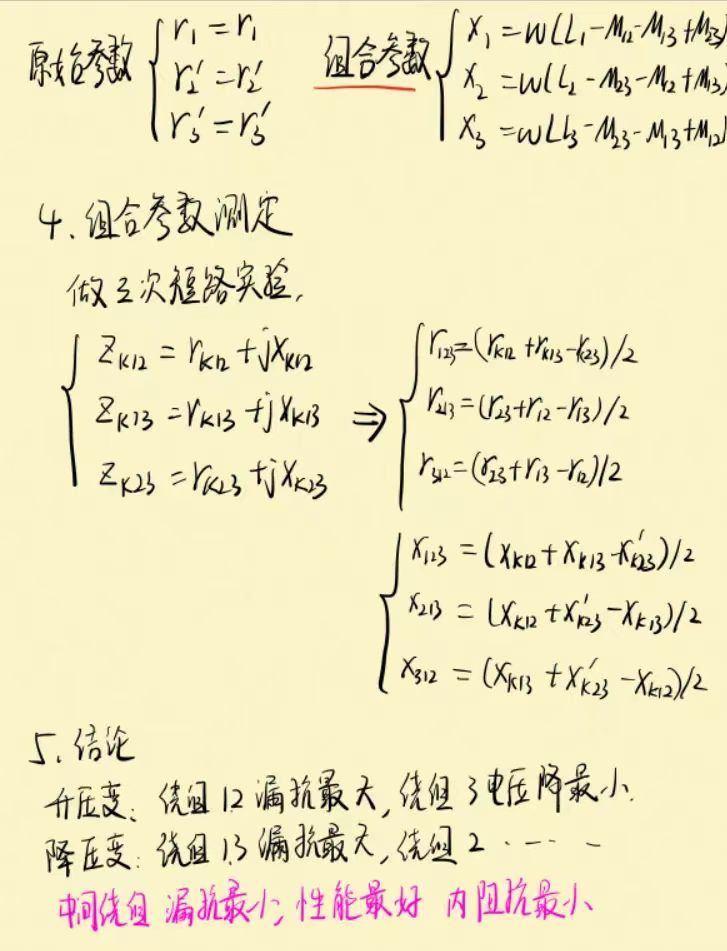 原始参数 { r₁ = r₁ 组合参数 { x₁ = w(L₁ - M₁₂ - M₁₃ + M₂₃)
r₂′ = r₂′ x₂ = w(L₂ - M₂₃ - M₁₂ + M₁₃)
r₃′ = r₃′ x₃ = w(L₃ - M₂₃ - M₁₃ + M₁₂)
4、组合参数测定
做三次短路实验,
Z_K12 = r_K12 + jX_K12
Z_K13 = r_K13 + jX_K13 ⇒
Z_K23 = r_K23 + jX_K23
r₁₂₃ = (r_K12 + r_K13 - r_K23)/2
r₂₁₃ = (r₂₃ + r₁₂ - r₁₃)/2
r₃₁₂ = (r₂₃ + r₁₃ - r₁₂)/2
x₁₂₃ = (x_K12 + x_K13 - x′_K23)/2
x₂₁₃ = (x_K12 + x′_K23 - x_K13)/2
x₃₁₂ = (x_K13 + x′_K23 - x_K12)/2
5、结论
升压变: 绕组1.2漏抗最大,绕组3电压降最小.
降压变: 绕组1.3漏抗最大,绕组2 ‐ ‐ ‐ ‐
中间绕组 漏抗最小,性能最好 内阻抗最小